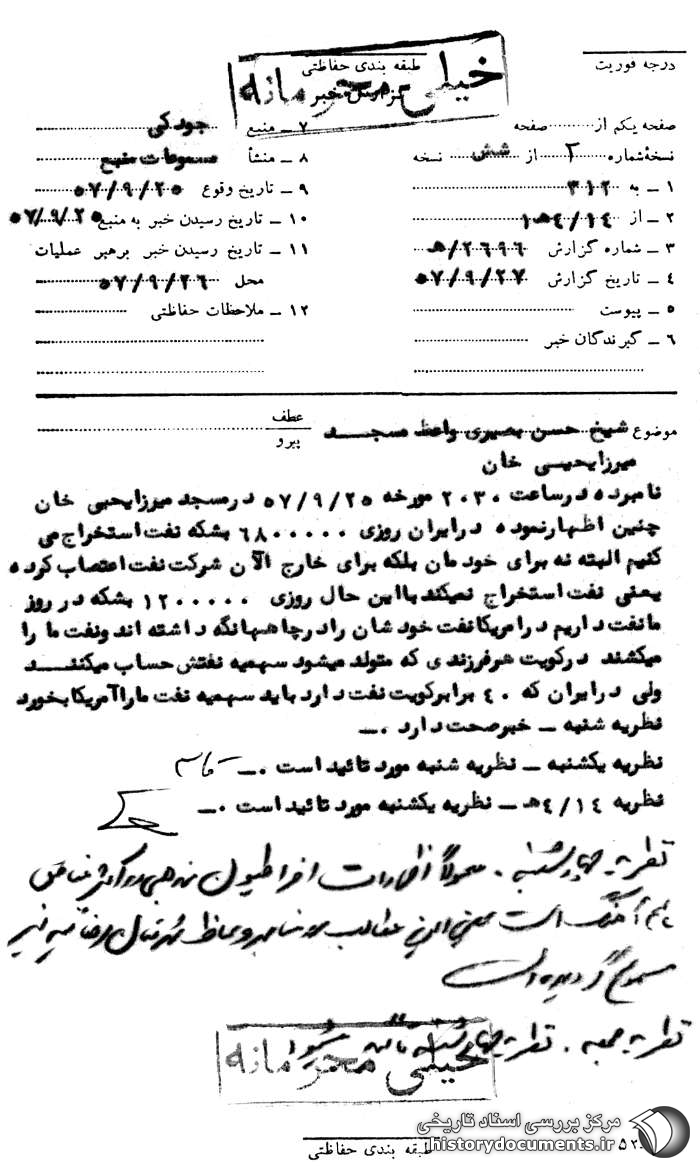 درجه فوریت
طبقه بندی حفاظتی
خیلی محرمانه
گزارش خبر
صفحه یکم از صفحه
نسخه شماره ۲ از شش نسخه
۱ ـ به ۳۱۲
۲ ـ از ۴/۱۴هـ۱
۳ ـ شماره گزارش ۲۶۹۶/هـ
۴ ـ تاریخ گزارش ۵۷/۹/۲۷
۵ ـ پیوست
۶ ـ گیرندگان خبر
۷ ـ منبع جودکی
۸ ـ منشأ مسموعات منبع
۹ ـ تاریخ وقوع ۵۷/۹/۲۵
۱۰ ـ تاریخ رسیدن خبر به منبع ۵۷/۹/۲۵
۱۱ ـ تاریخ رسیدن خبر برهبر عملیات
محل ۵۷/۹/۲۶
۱۲ ـ ملاحظات حفاظتی
موضوع شیخ حسن بصیری واعظ مسجد
عطف
پیرو
میرزا یحیی خان
نامبرده درساعت ۲۰۳۰ مورخه ۵۷/۹/۲۵ درمسجد میرزا یحیی خان
چنین اظهارنموده درایران روزی ۶۸۰۰۰۰۰ بشکه نفت استخراج می
کنیم البته نه برای خودمان بلکه برای خارج الآن شرکت نفت اعتصاب کرده
یعنی نفت استخراج نمیکند بااین حال روزی ۱۲۰۰۰۰۰ بشکه در روز
مانفت داریم درامریکا نفت خودشان رادرچاهها نگه داشته اند ونفت ما را
میکشند درکویت هرفرزندی که متولد میشود سهمیه نفتش حساب میکنند
ولی درایران که ۴۰ برابر کویت نفت دارد باید سهمیه نفت مارا آمریکا بخورد
نظریه شنبه ـ خبرصحت دارد .ـ
نظریه یکشنبه ـ نظریه شنبه مورد تائید است .ـ
نظریه ۴/۱۴هـ ـ نظریه یکشنبه مورد تائید است .ـ
نظریه چهارشنبه . معمولاً اظهارات افراطیون مذهبی در اکثر مناطق
هم آهنگ است
مسموع گردیده است
نظریه جمعه . نظریه چهارشنبه تائید میشود
خیلی محرمانه
طبقه بندی حفاظتی
مرکز بررسی اسناد تاریخی
historydocuments.ir